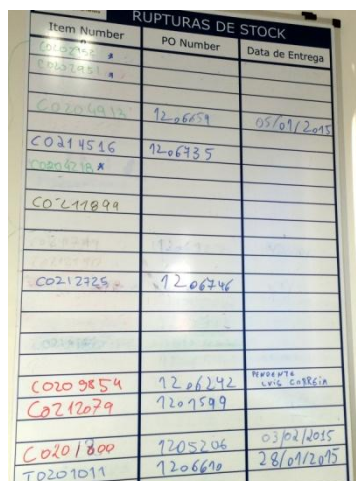 RUPTURAS DE STOCK
Item Number PO Number Data de Entrega
C0202951
C0204913 1206659 05/01/2015
C0214516 1206735
C0204218
C0211899
C0212725 1206746
C0209854 1206242 PENDENTE LUIS CORREIA
C0212079 1201599
1205206 03/02/2015
T0201011 1206610 28/01/2015